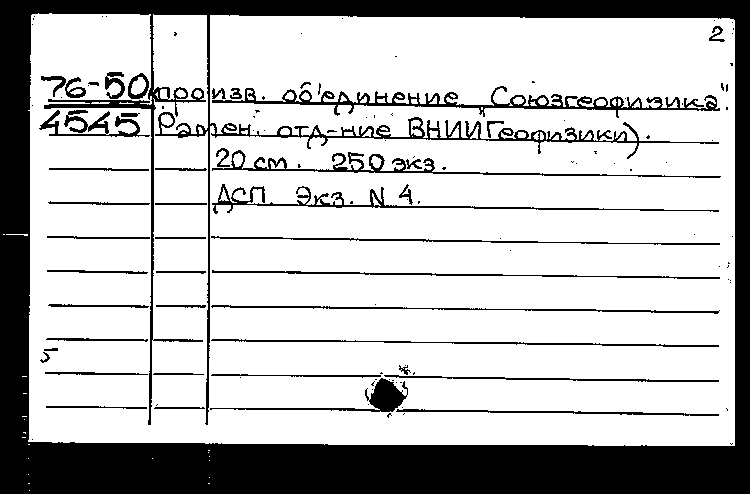 2
76-50 произв. об'единение „Союзгеофизика".
4545 Рамен. отд-ние ВНИИГеофизики).
20 см. 250 экз.
ДСП. Экз. N 4.
5